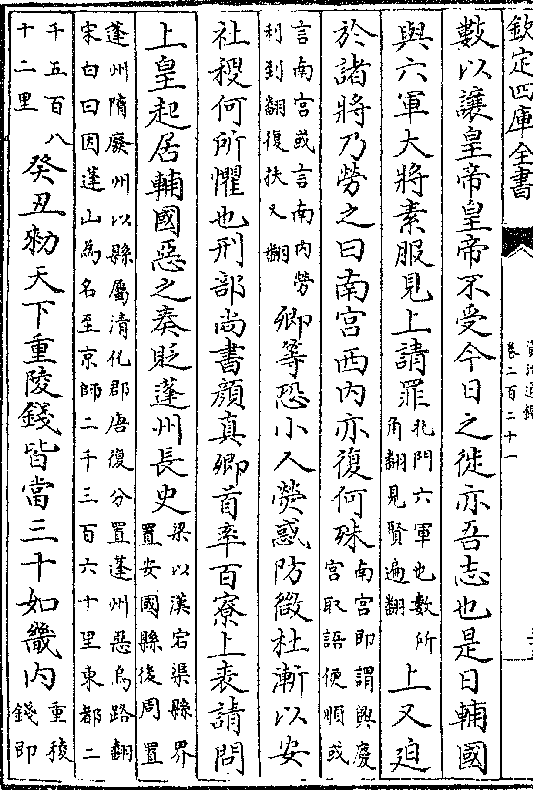 欽定四庫全書
資治通鑑
卷二百二十一
數以讓皇帝皇帝不受今日之徙亦吾志也是日輔國
與六軍大將素服見上請罪
北門六軍也數所
角翻見賢遍翻
上又迫
於諸將乃勞之曰南宫西内亦復何殊
南宫即謂興慶
宫取語便順或
言南宫或言南内勞
利到翻復扶又翻
卿等恐小人熒惑防微杜漸以安
社稷何所懼也刑部尚書顔真卿首率百寮上表請問
上皇起居輔國惡之奏貶蓬州長史
梁以漢宕渠縣界
置安國縣後周置
蓬州隋廢州以縣屬清化郡唐復分置蓬州惡烏路翻
宋白曰因蓬山為名至京師二千三百六十里東都二
千五百八
十二里
癸丑勑天下重陵錢皆當三十如畿内
重稜
錢即